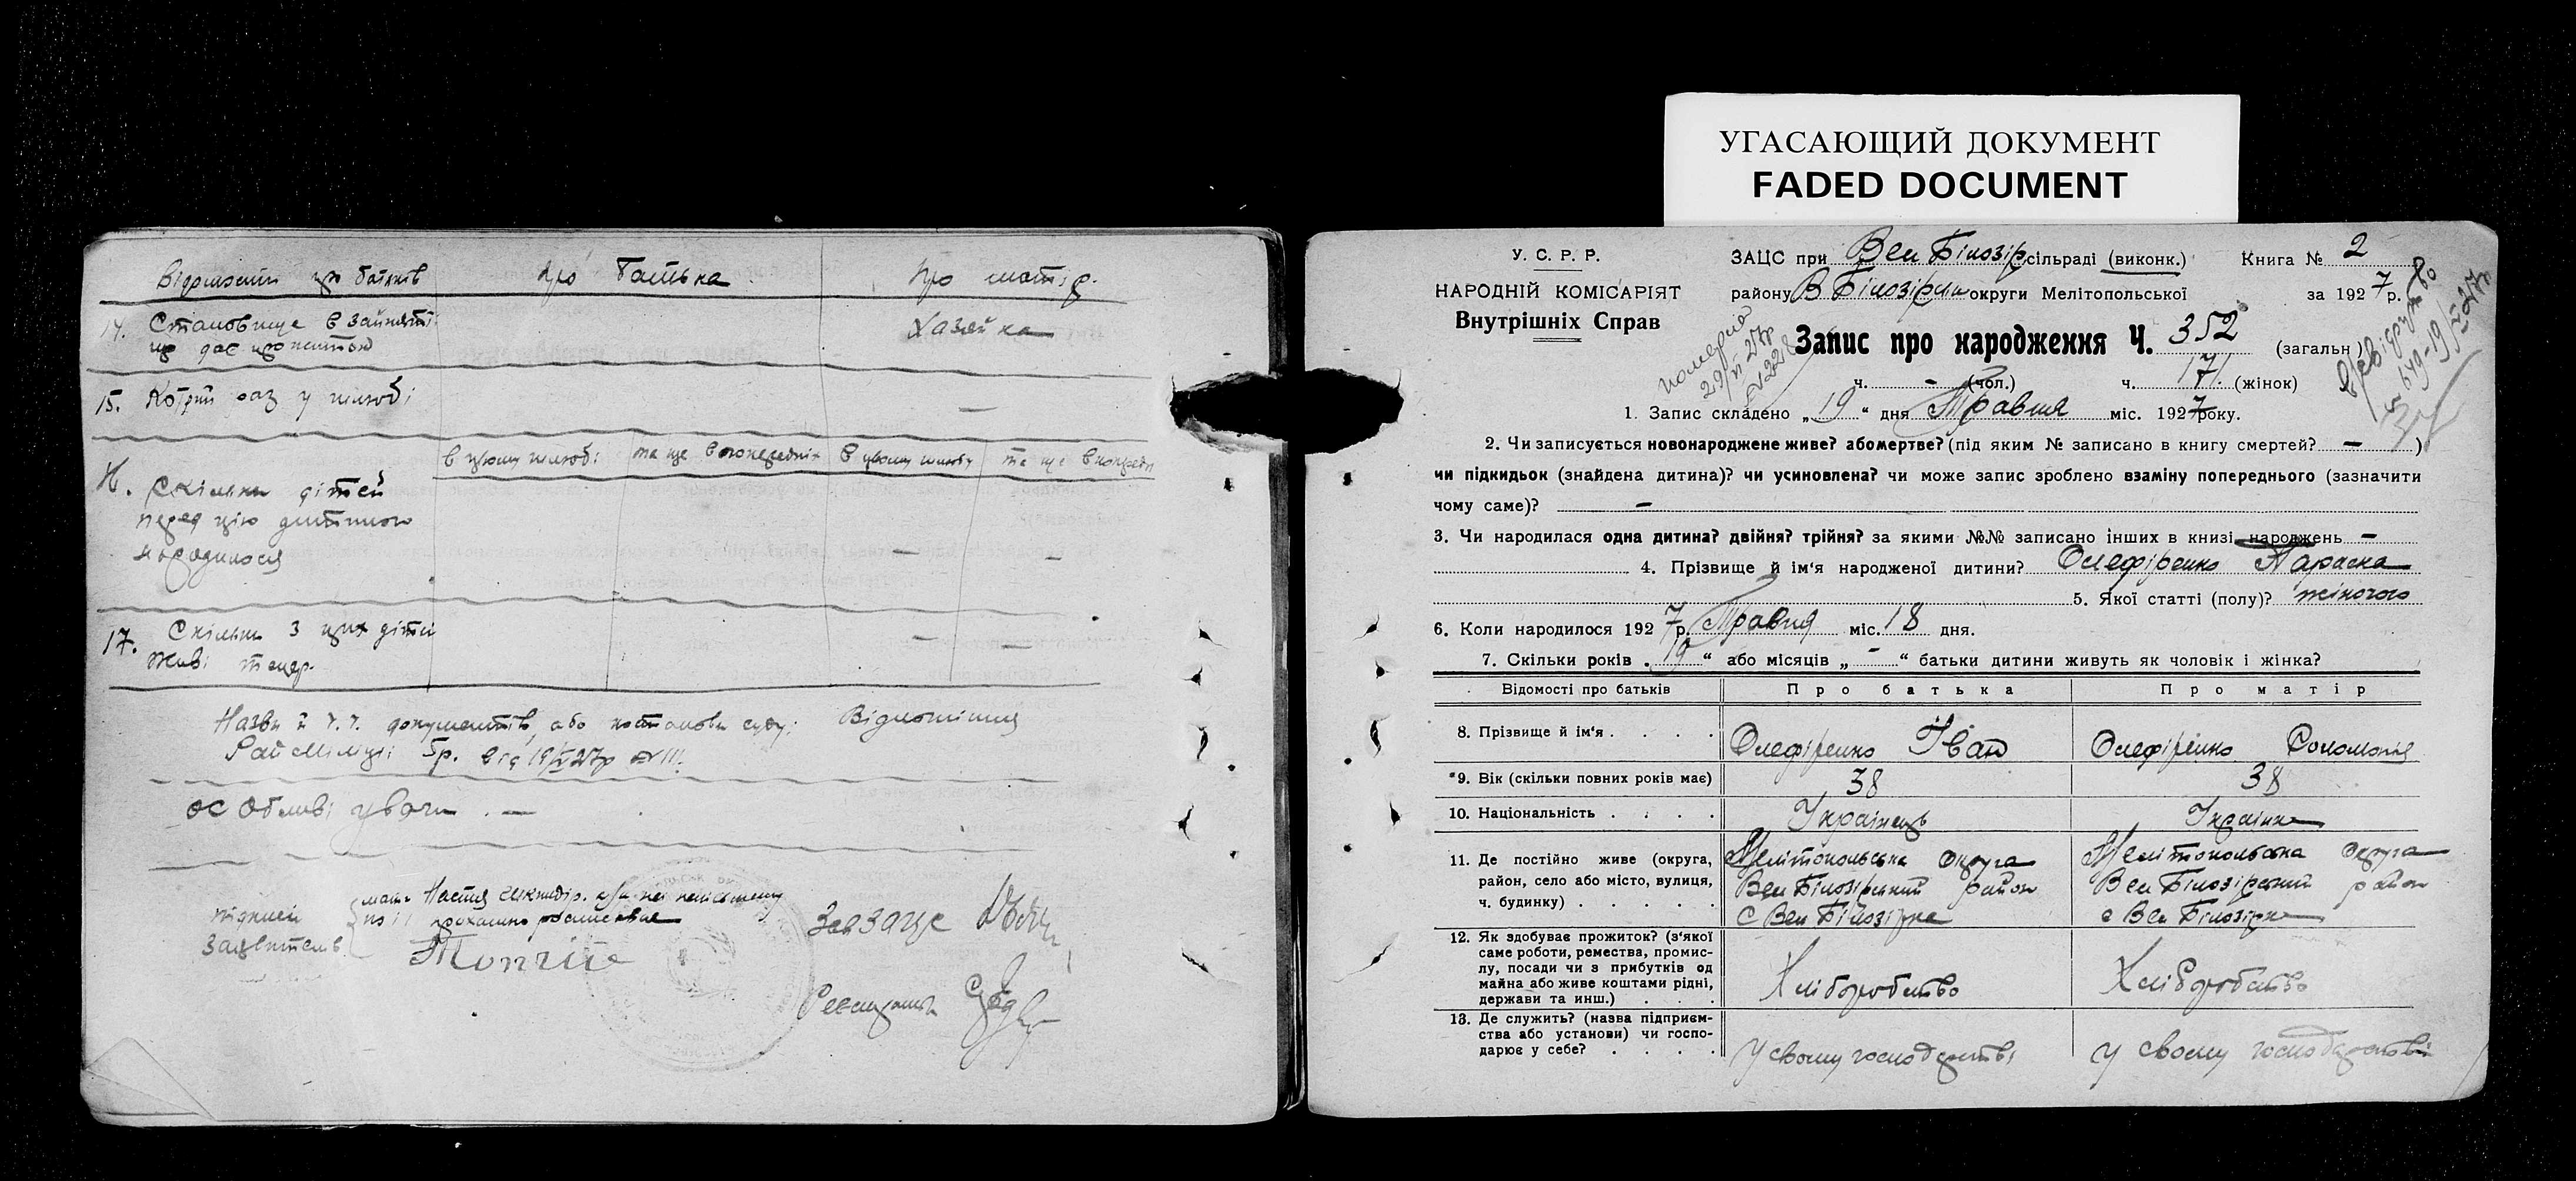 УГАСАЮЩИЙ ДОКУМЕНТ
FADED DOCUMENT
Відомости про батьків Про батька Про матір.
14. Становище в занятті Хазяйка
що дає прожиток
15. Котрий раз у шлюбі —
в цьому шлюбі та ще в попередніх в цьому шлюбі та ще в поперед
16. Скільки дітей
перед цією дитиною
народилося — —
17. Скільки з цих дітей — —
живі тепер.
Назви й ч.ч. документів, або постанови суду:
Райміліції
Особливі уваги. —
Підписи
заявителів
мати Настя
Зав Загс
У. С. Р. Р.
НАРОДНІЙ КОМІСАРІЯТ
Внутрішніх Справ
ЗАЦС при Вел Білозір сільраді (виконк.) Книга № 2
району В Білозірськ округи Мелітопольської за 1927 р.
Запис про народження Ч. 352 (загальн.)
померла
ч. - (чол.) ч. 171 (жінок)
1. Запис складено „19“ дня Травня міс. 1927 року.
2. Чи записується новонароджене живе? або мертве? (під яким № записано в книгу смертей? —)
чи підкидьок (знайдена дитина)? чи усиновлена? чи може запис зроблено взаміну попереднього (зазначити
чому саме)? —
3. Чи народилася одна дитина? двійня? трійня? за якими №№ записано інших в книзі народжень —
4. Прізвище й ім'я народженої дитини? Олефіренко Параска
5. Якої статті (полу)? жіночого
6. Коли народилося 1927 р. Травня міс. 18 дня.
7. Скільки років „19“ або місяців „-“ батьки дитини живуть як чоловік і жінка?
Відомості про батьків Про батька Про матір
8. Прізвище й ім'я . . . . Олефіренко Іван Олефіренко Соломонія
*9. Вік (скільки повних років має) 38 38
10. Національність . . . . Українець Українка
11. Де постійно живе (округа, Мелітопольська Округа Мелітопольська Округа
район, село або місто, вулиця, Вел Білозірський район Вел Білозірський район
ч. будинку) . . . . . с Вел Білозірка с Вел Білозірка
12. Як здобуває прожиток? (з'якої
саме роботи, ремества, промис-
лу, посади чи з прибутків од Хліборобство Хліборобство
майна або живе коштами рідні,
держави та инш.) . . .
13. Де служить? (назва підприєм-
ства або установи) чи госпо-
дарює у себе? . . . . У свому господарстві У свому господарстві